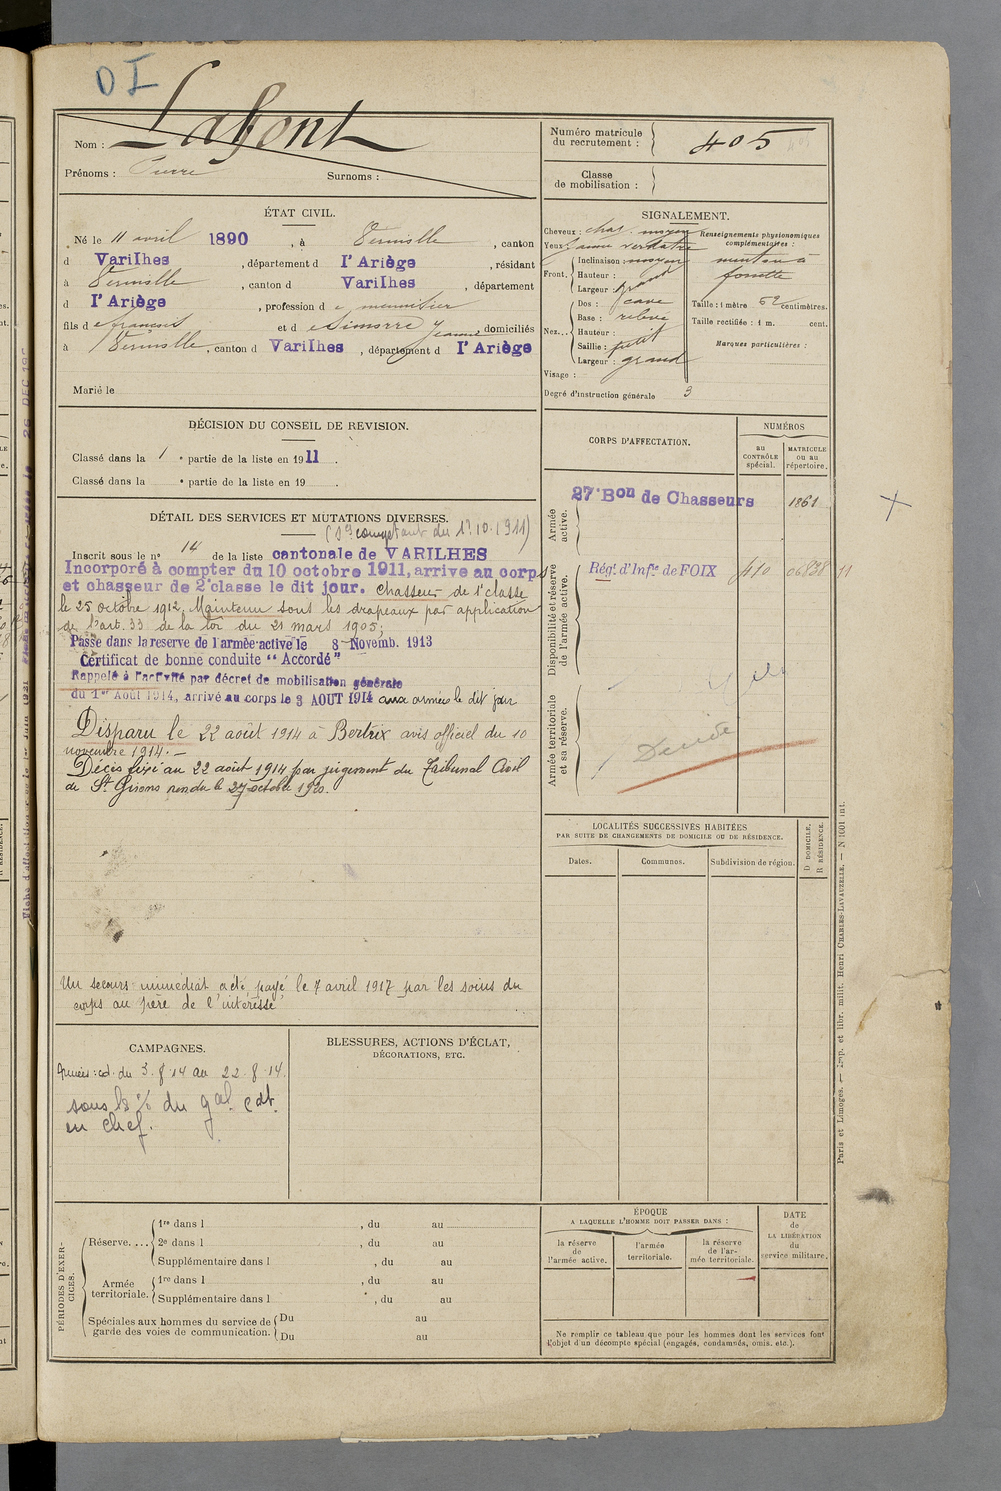 DI
Nom : Lafont
Prénoms : Pierre Surnoms :
Numéro matricule
du recrutement : 405
Classe
de mobilisation :
ÉTAT CIVIL.
Né le 11 avril 1890, à , canton
d Varilhes, département d l'Ariège, résidant
à , canton d Varilhes, département
d l'Ariège, profession d e menuisier
fils d e françois et d e Simorre Jeanne domiciliés
à , canton d Varilhes, département d l'Ariège
Marié le
SIGNALEMENT.
Cheveux : moyen
Yeux : jaune verdatre
Front. Inclinaison : moyen
Hauteur : grand
Largeur : grand
Nez... Dos : cave
Base : relevé
Hauteur :
Saillie : petit
Largeur : grand
Visage :
Renseignements physionomiques
complémentaires :
menton à
fossette
Taille : 1 mètre 62 centimètres.
Taille rectifiée : 1 m. cent.
Marques particulières :
Degré d'instruction générale 3
DÉCISION DU CONSEIL DE REVISION.
Classé dans la 1 e partie de la liste en 1911.
Classé dans la e partie de la liste en 19 .
DÉTAIL DES SERVICES ET MUTATIONS DIVERSES.
(Sce comptant du 1.10.1911)
Inscrit sous le n° 14 de la liste cantonale de VARILHES
Incorporé à compter du 10 octobre 1911, arrive au corps
et chasseur de 2e classe le dit jour. Chasseur de 1e classe
le 25 octobre 1912. Maintenu sous les drapeaux par application
de l'art. 33 de la loi du 21 mars 1905;
Passé dans la reserve de l'armée active le 8 Novemb. 1913
Certificat de bonne conduite “ Accordé ”
Rappelé à l'activité par décret de mobilisation générale
du 1er Août 1914, arrivé au corps le 3 AOUT 1914 aux armées le dit jour
Disparu le 22 août 1914 à Bertrix avis officiel du 10
novembre 1914. —
Décès fixé au 22 août 1914 par jugement du Tribunal Civil
de St Girons rendu le 27 octobre 1920.
Un secours immédiat a été payé le 7 avril 1917 par les soins du
corps au père de l'intéressé
CORPS D'AFFECTATION.
NUMÉROS
au
CONTRÔLE
spécial.
MATRICULE
ou au
répertoire.
Armée
active.
27e Bon de Chasseurs 1861
Disponibilité et réserve
de l'armée active.
Régt d'Infie de FOIX 410 06838 11
Armée territoriale
et sa réserve.
Décédé
LOCALITÉS SUCCESSIVES HABITÉES
PAR SUITE DE CHANGEMENTS DE DOMICILE OU DE RÉSIDENCE.
Dates. Communes. Subdivision de région.
D DOMICILE.
R RÉSIDENCE.
CAMPAGNES.
cd. du 3.8.14 au 22.8.14.
sous le % du gal. Cdt.
en chef.
BLESSURES, ACTIONS D'ÉCLAT,
DÉCORATIONS, ETC.
PÉRIODES D'EXERCICES.
Réserve....
1re dans l , du au
2e dans l , du au
Supplémentaire dans l , du au
Armée
territoriale.
1re dans l , du au
Supplémentaire dans l , du au
Spéciales aux hommes du service de
garde des voies de communication.
Du au
Du au
ÉPOQUE
A LAQUELLE L'HOMME DOIT PASSER DANS :
la réserve
de
l'armée active.
l'armée
territoriale.
la réserve
de l'ar-
mée territoriale.
DATE
de
LA LIBÉRATION
du
service militaire.
Ne remplir ce tableau que pour les hommes dont les services font
l'objet d'un décompte spécial (engagés, condamnés, omis, etc.).
Paris et Limoges. — Imp. et libr. milit. Henri CHARLES-LAVAUZELLE. — N 1601 int.